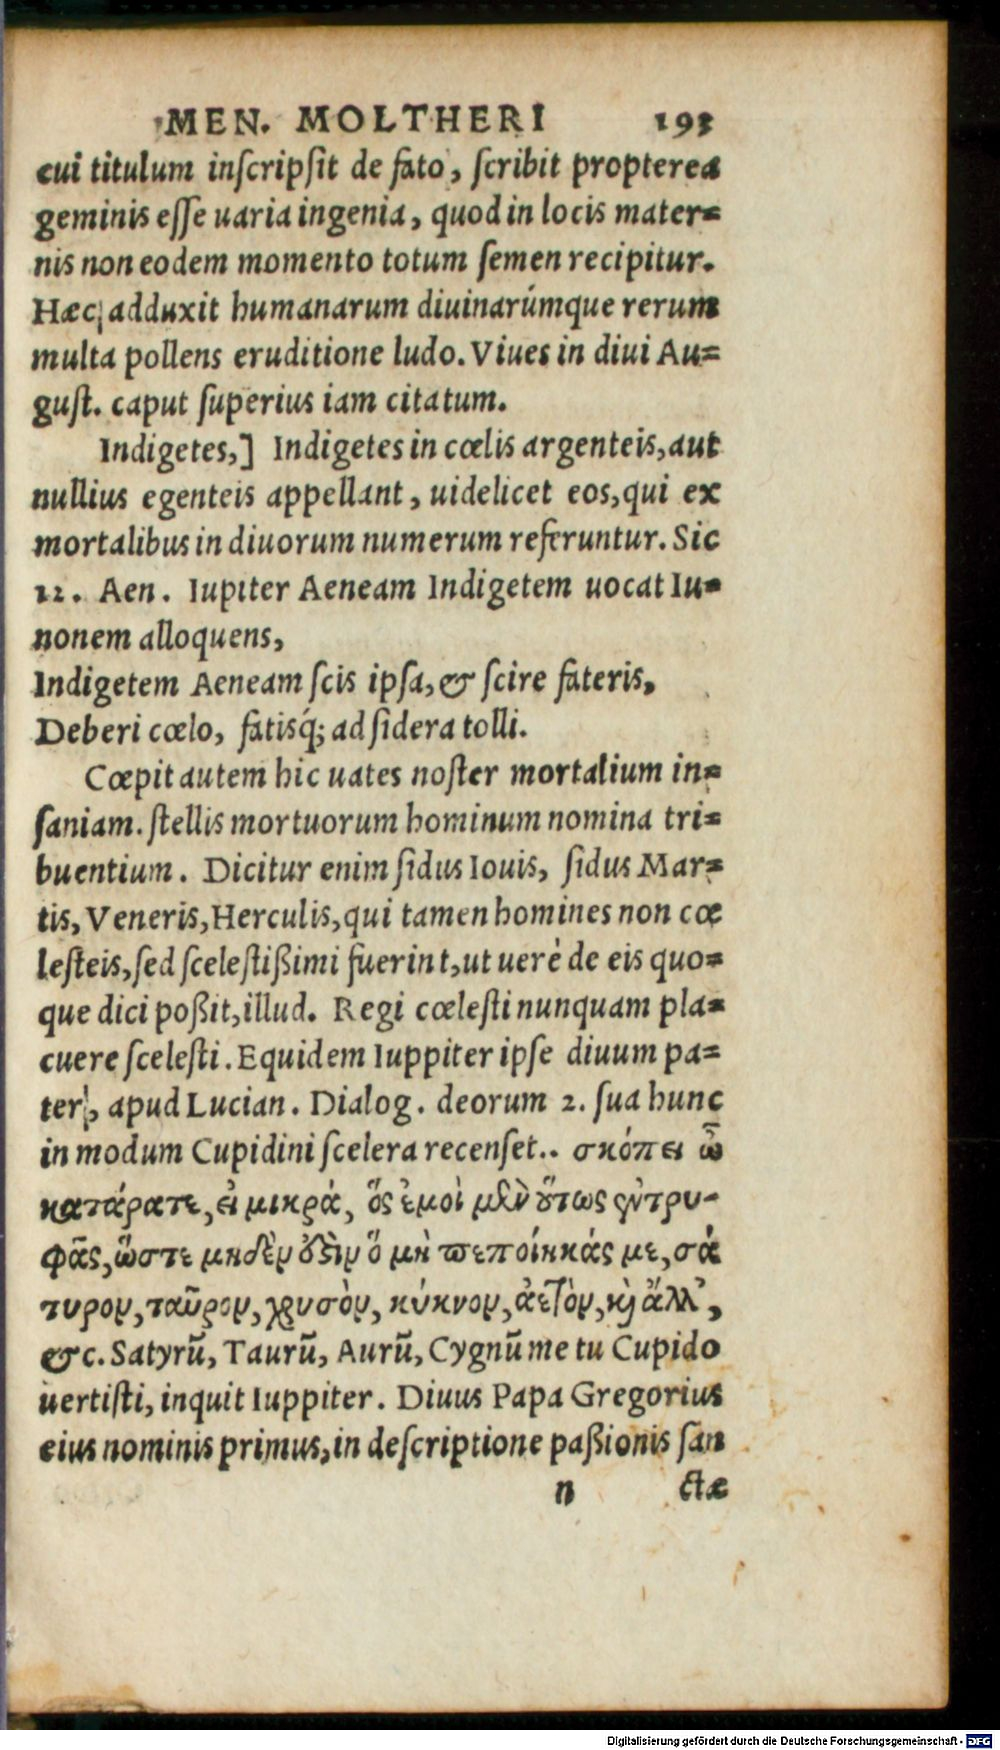 MEN. MOLTHERI 193
cui titulum inſcripſit de fato, ſcribit propterea
geminis eſſe uaria ingenia, quod in locis mater=
nis non eodem momento totum ſemen recipitur.
Hæc adduxit humanarum diuinarúmque rerum
multa pollens eruditione ludo. Viues in diui Au=
guſt. caput ſuperius iam citatum.
Indigetes,] Indigetes in cœlis argenteis, aut
nullius egenteis appellant, uidelicet eos, qui ex
mortalibus in diuorum numerum referuntur. Sic
12. Aen. Iupiter Aeneam Indigetem uocat Iu=
nonem alloquens,
Indigetem Aeneam ſcis ipſa, & ſcire fateris,
Deberi cœlo, fatisq́; ad ſidera tolli.
Cœpit autem hic uates noſter mortalium in=
ſaniam. ſtellis mortuorum hominum nomina tri=
buentium. Dicitur enim ſidus Iouis, ſidus Mar=
tis, Veneris, Herculis, qui tamen homines non cœ
leſteis, ſed ſceleſtißimi fuerint, ut uerè de eis quo=
que dici poßit, illud. Regi cœleſti nunquam pla=
cuere ſceleſti. Equidem Iuppiter ipſe diuum pa=
ter, apud Lucian. Dialog. deorum 2. ſua hunc
in modum Cupidini ſcelera recenſet.. σκόπει ὦ
κατάρατε, εἰ μικρά, ὅς ἐμοὶ μὲν ὅτως ἐντρυ-
φᾶς, ὥστε μηδὲν ὅϐιν ὅ μὴ πεποίηκάς με, σά
τυρον, ταῦρον, χρυσὸν, κύκνον, ἀετὸν, κỳ ἄλλ',
&c. Satyrũ, Taurũ, Aurũ, Cygnũ me tu Cupido
uertiſti, inquit Iuppiter. Diuus Papa Gregorius
eius nominis primus, in deſcriptione paßionis ſan
n ctæ
Digitalisierung gefördert durch die Deutsche Forschungsgemeinschaft - DFG